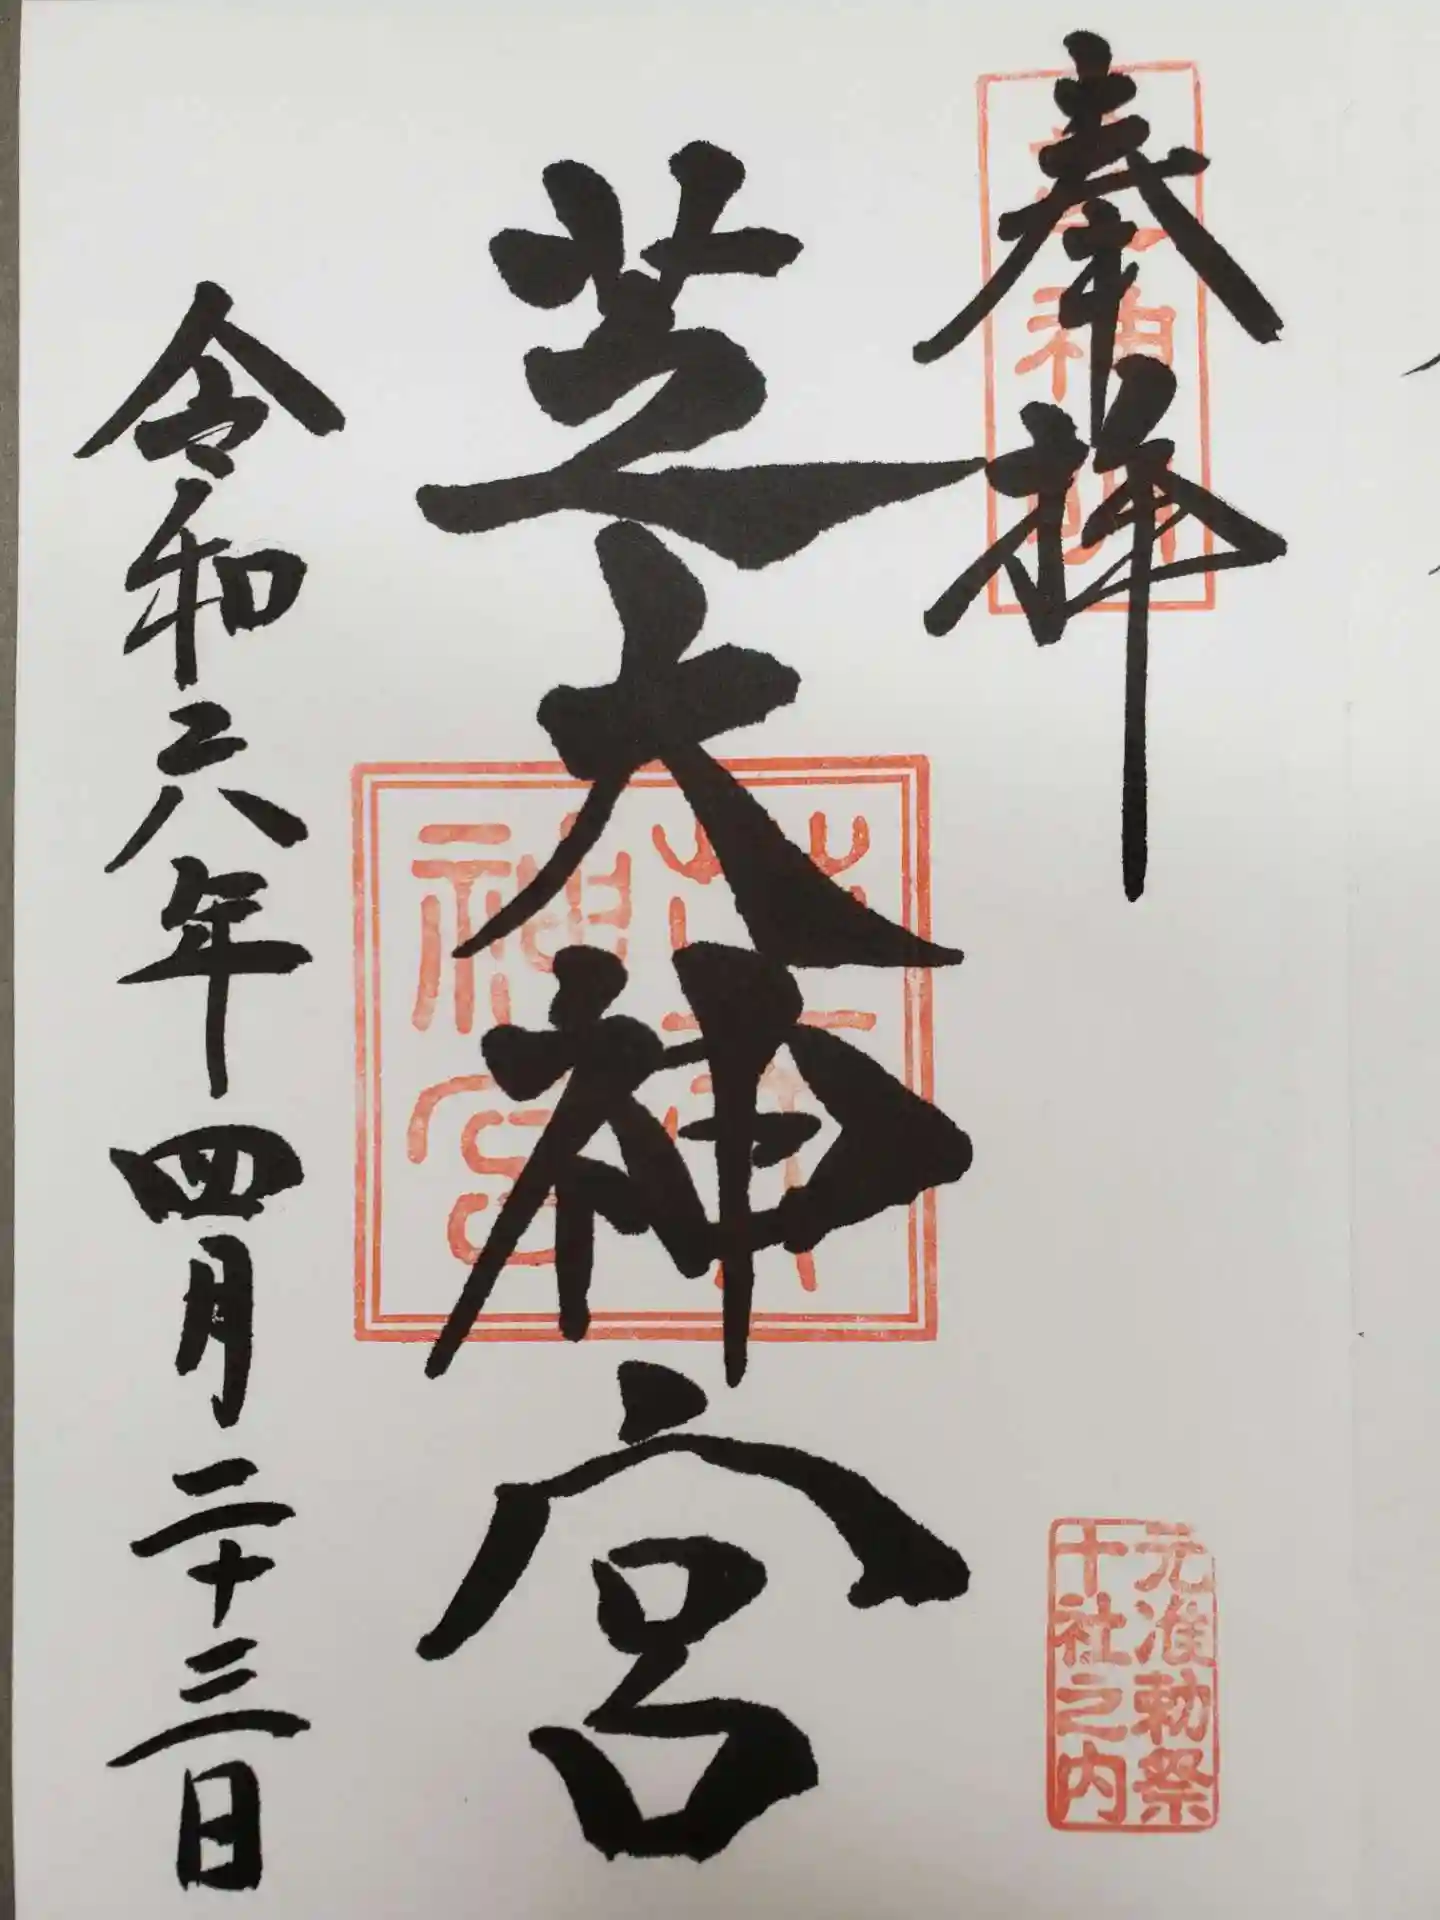 奉拝
元准勅祭
十社之内
芝大神宮
令和六年四月二十三日